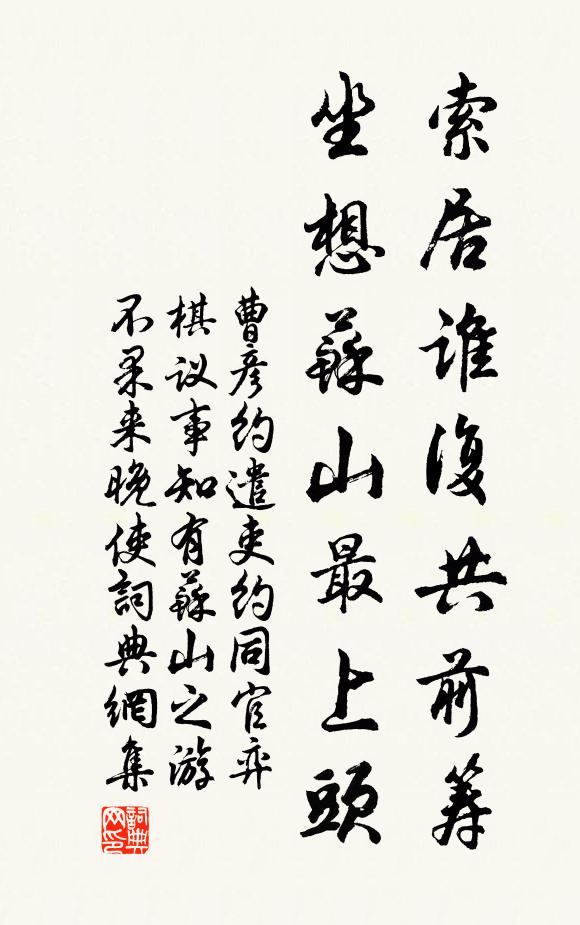 索居誰復共前筹
坐想蘇山最上頭
曹彦約遣吏約同官弈
棋议事知有蘇山之游
不果来晚使詞典網集
詞典
网印